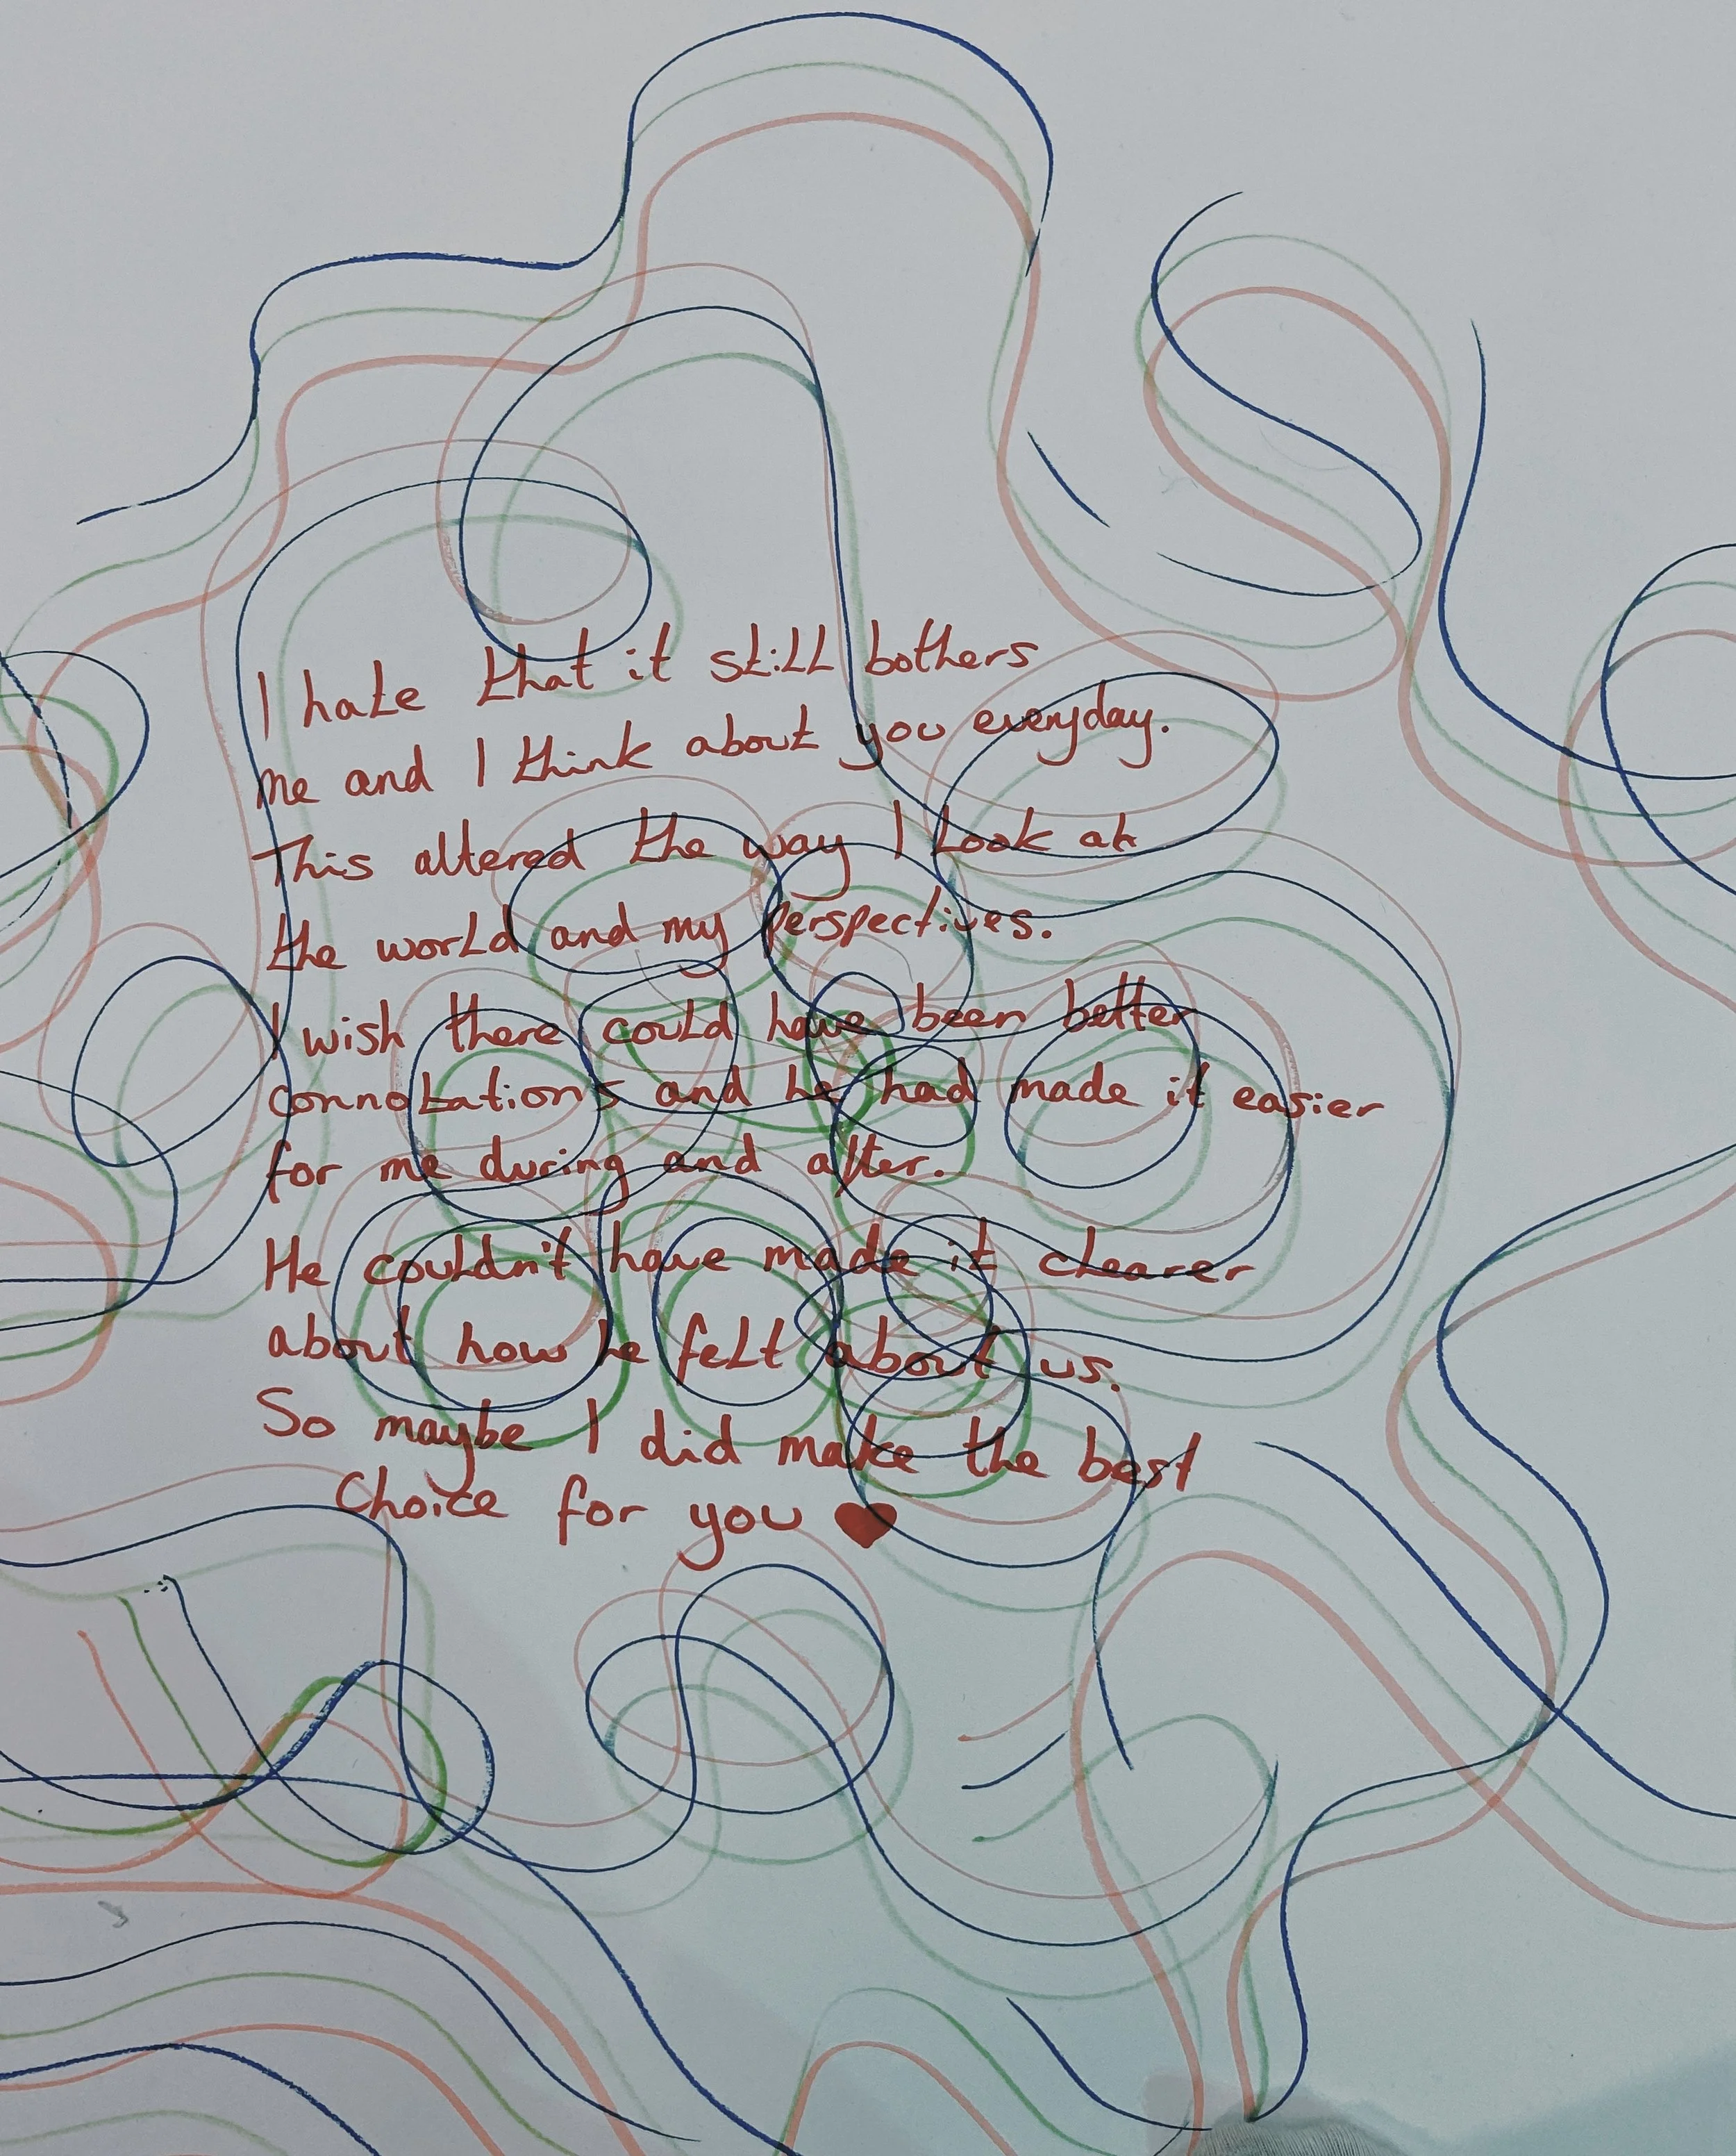 I hate that it still bothers
me and I think about you everyday.
This altered the way I look at
the world and my perspectives.
I wish there could have been better
connotations and he had made it easier
for me during and after.
He couldn't have made it clearer
about how he felt about us.
So maybe I did make the best
Choice for you ♥